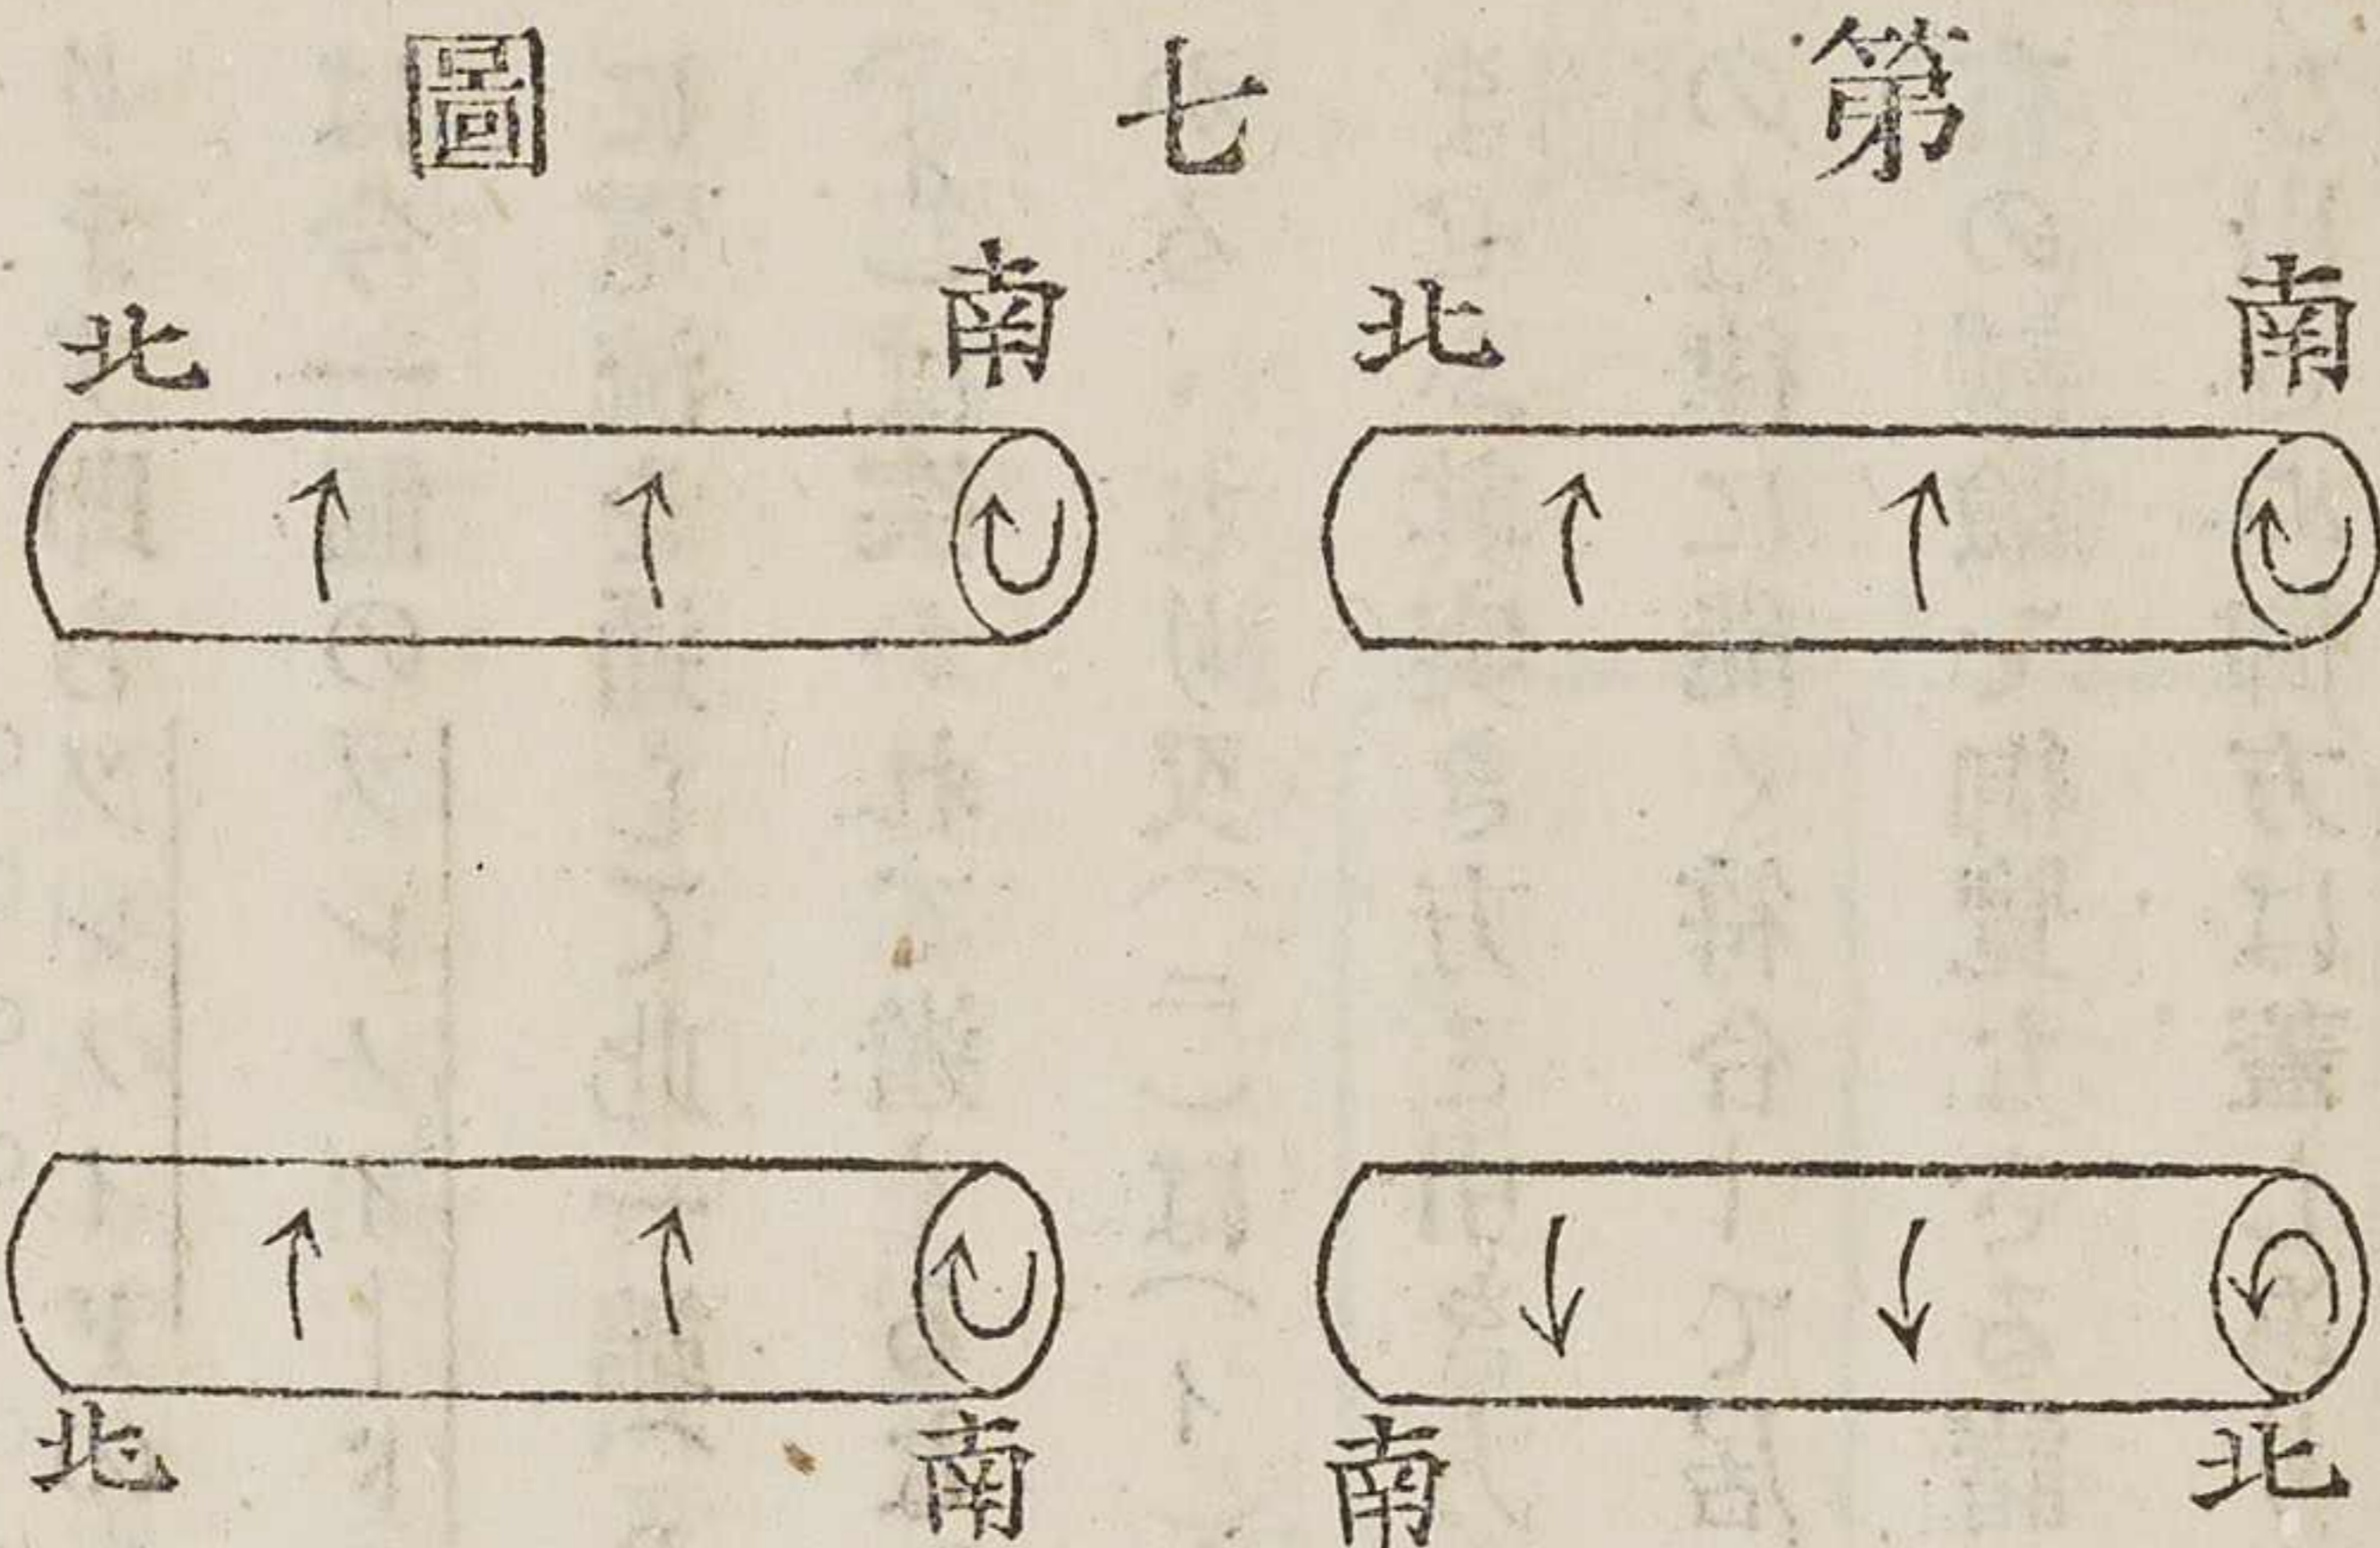 第七圖
南 北 南 北
北 南 南 北